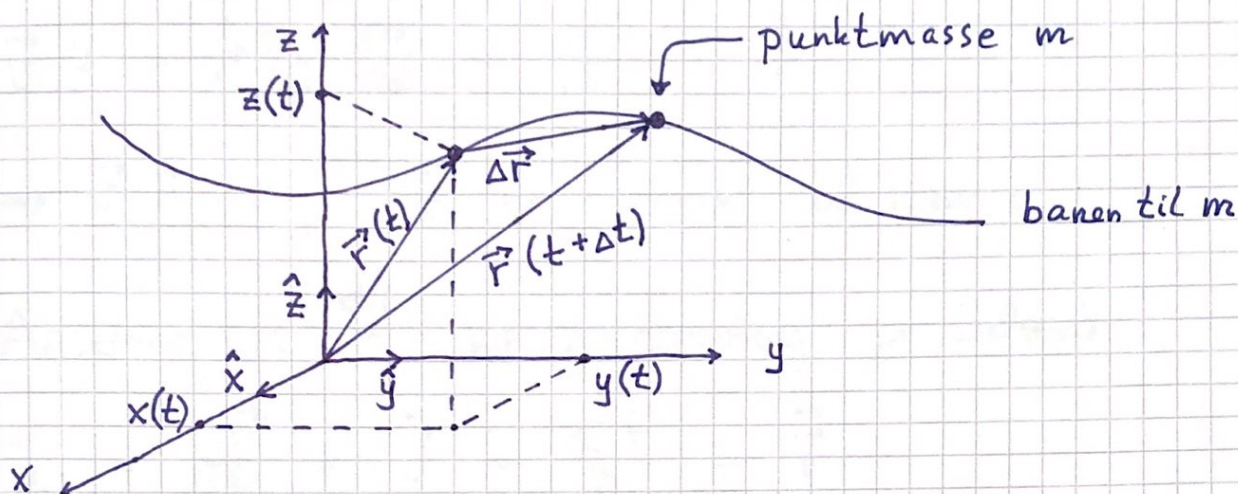 z
punktmasse m
z(t)
Δr⃗
r⃗(t)
banen til m
r⃗(t+Δt)
ẑ
x̂
ŷ
y(t)
y
x(t)
x